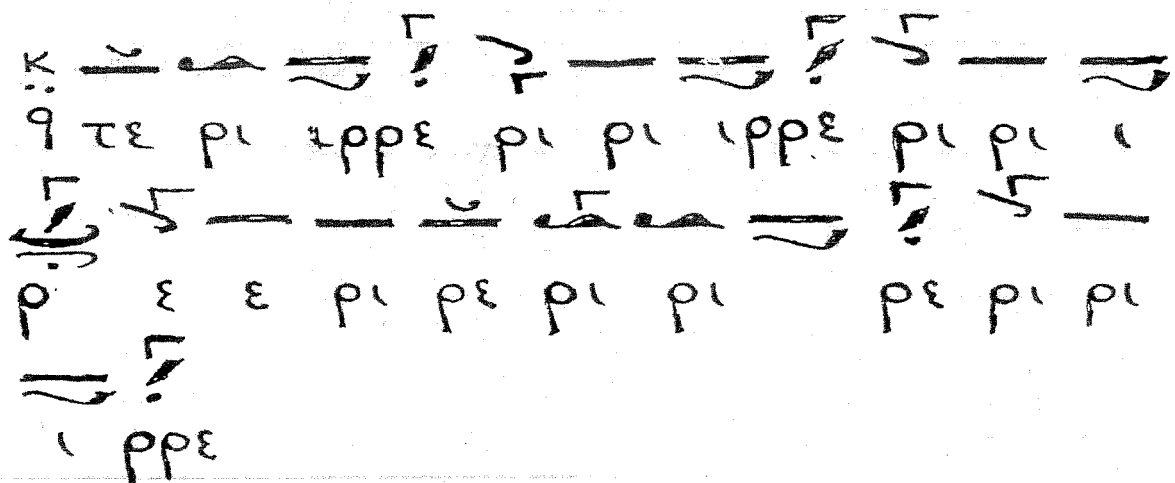 τε ρι ιρρε ρι ρι ιρρε ρι ρι ι
ρ ε ε ρι ρε ρι ρι ρε ρι ρι
ι ρρε